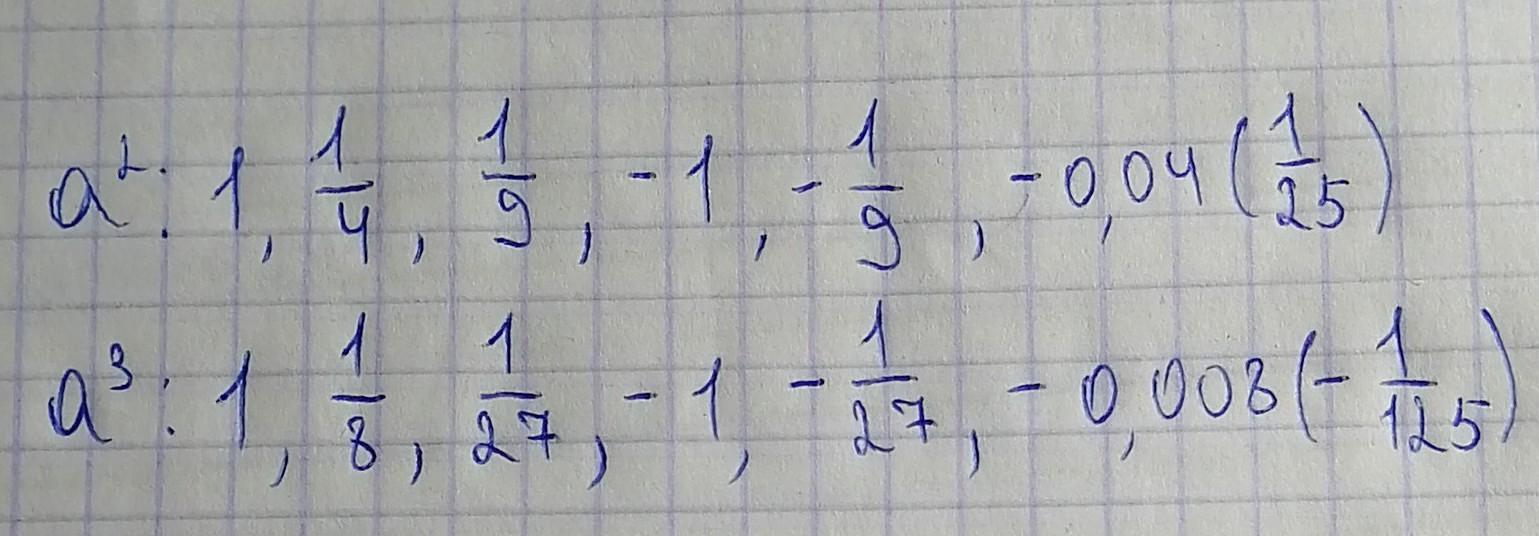 a²: 1, 1/4, 1/9, -1, -1/9, -0,04 (1/25)
a³: 1, 1/8, 1/27, -1, -1/27, -0,008 (-1/125)